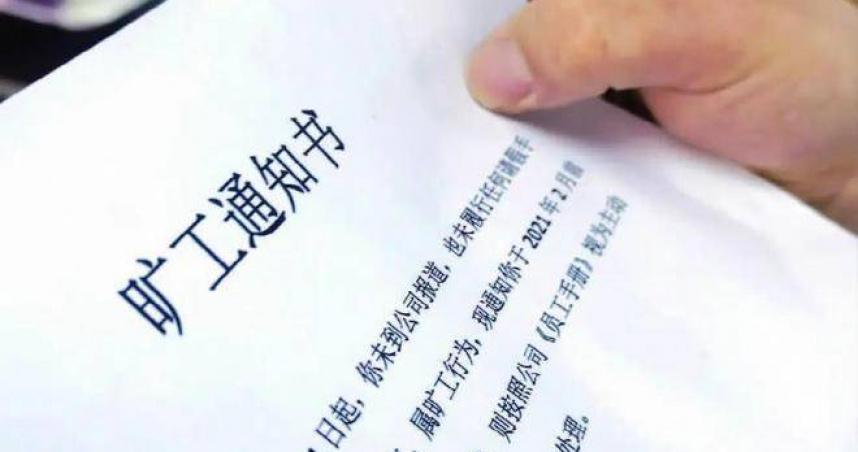 旷工通知书
日起，你未到公司报道，也未履行任何请假手
属旷工行为，现通知你于 2021 年 2 月
则按照公司《员工手册》视为主动
处理。